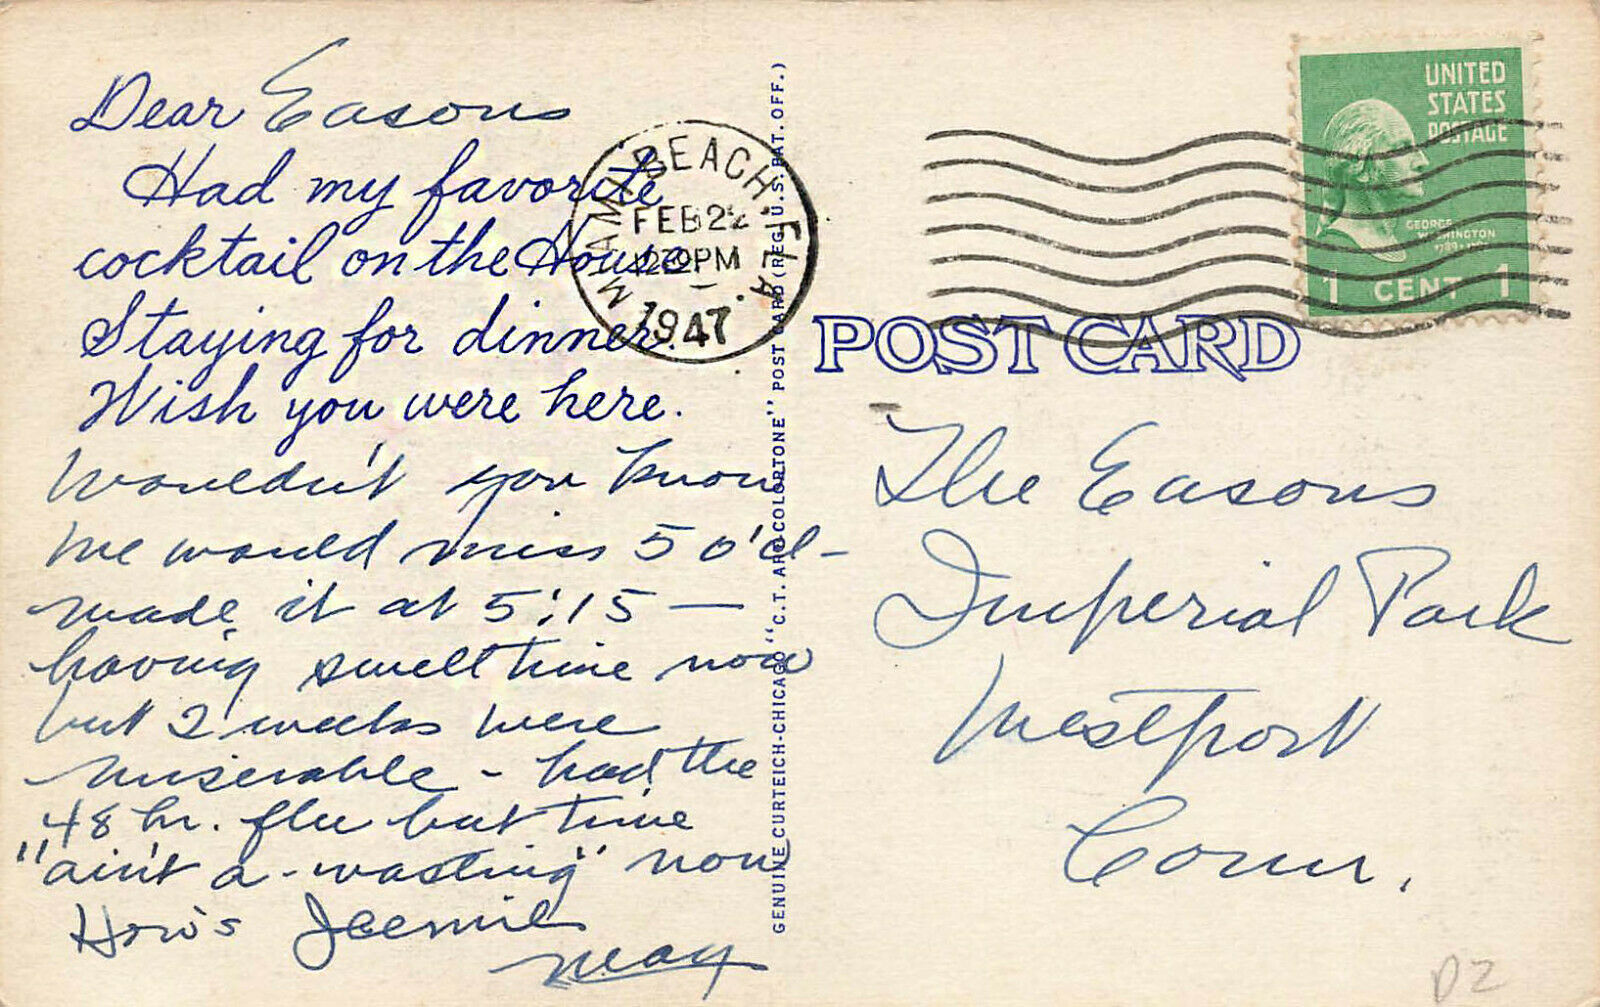 Dear Easons
Had my favorite
cocktail on the House.
Staying for dinner.
Wish you were here.
Wouldn't you know
we would miss 5 o'cl-
made it at 5:15 —
having swell time now
but 2 weeks were
miserable - had the
48 hr. flu but time
"ain't a-wasting" now
How's
May
MIAMI BEACH, FLA.
FEB 22
PM
1947
GENUINE CURTEICH-CHICAGO "C.T. ART-COLORTONE" POST CARD (REG. U.S. PAT. OFF.)
UNITED
STATES
POSTAGE
GEORGE
WASHINGTON
1 CENT 1
POST CARD
The Easons
Imperial Park
Westport
Conn.
D2